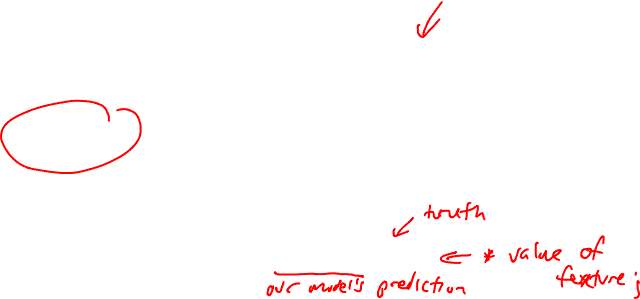 truth
* value of
feature j
our model's prediction